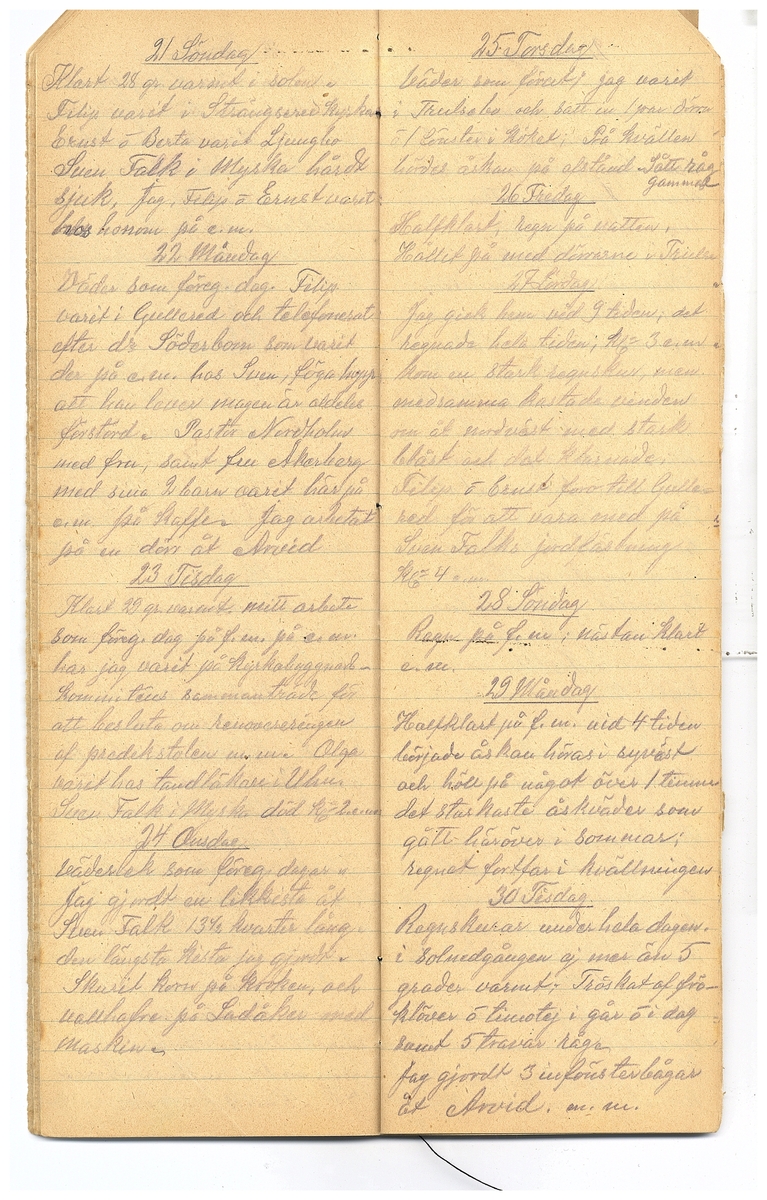 21 Söndag
Klart 28 gr. varmt i solen.
Filip varit i Strängsered kyrka
Ernst o Berta varit Ljungbo
Sven Falk i Myska hårdt
sjuk, Jag, Filip o Ernst varit
hos honom på e.m.
22 Måndag
Väder som föreg. dag. Filip
varit i Gullered och telefonerat
efter dr Söderbom som varit
der på e.m. hos Sven, föga hopp
att han lever magen är aldeles
förstörd. Pastor Nordholm
med fru, samt fru Åkerberg
med sina 2 barn varit här på
e.m. på kaffe. Jag arbetat
på en dörr åt Arvid
23 Tisdag
Klart 29 gr. varmt. mitt arbete
som föreg. dag på f.m. på e.m.
har jag varit på kyrkobyggnads-
kommitéens sammanträde för
att besluta om renoveringen
af predikstolen m.m. Olga
varit hos tandläkare i Ulrh.
Sven Falk i Myska död kl 2 e.m
24 Onsdag
Väderlek som föreg. dagar.
Jag gjordt en likkista åt
Sven Falk 13½ kvarter lång
den längsta kista jag gjordt.
Skurit korn på kroken, och
vallhafre på Ladåker med
maskin.
25 Torsdag
Väder som förut; jag varit
i Trulsebo och satt in 1 par dörrar
o 1 fönster i köket; På kvällen
hördes åskan på afstånd. Sått råg
gammal
26 Fredag
Halfklart, regn på natten.
Hållit på med dörrarne i
27 Lördag
Jag gick hem vid 9 tiden; det
regnade hela tiden; kl 3 e.m.
kom en stark regnskur, men
medsamma kastade vinden
om åt nordväst med stark
blåst och det klarnade.
Filip o Ernst foro till Gulle-
red för att vara med på
Sven Falks jordfästning
kl 4 e.m.
28 Söndag
Regn på f.m; nästan klart
e.m.
29 Måndag
Halfklart på f.m. vid 4 tiden
började åskan höras i sydväst
och höll på något över 1 timme
det starkaste åskväder som
gått häröver i sommar;
regnet fortfar i kvällningen
30 Tisdag
Regnskurar under hela dagen.
i solnedgången ej mer än 5
grader varmt; Tröskat af frö-
klöver o timotej i går o i dag
samt 5 travar råg.
Jag gjordt 3 infönsterbågar
åt Arvid. m.m.